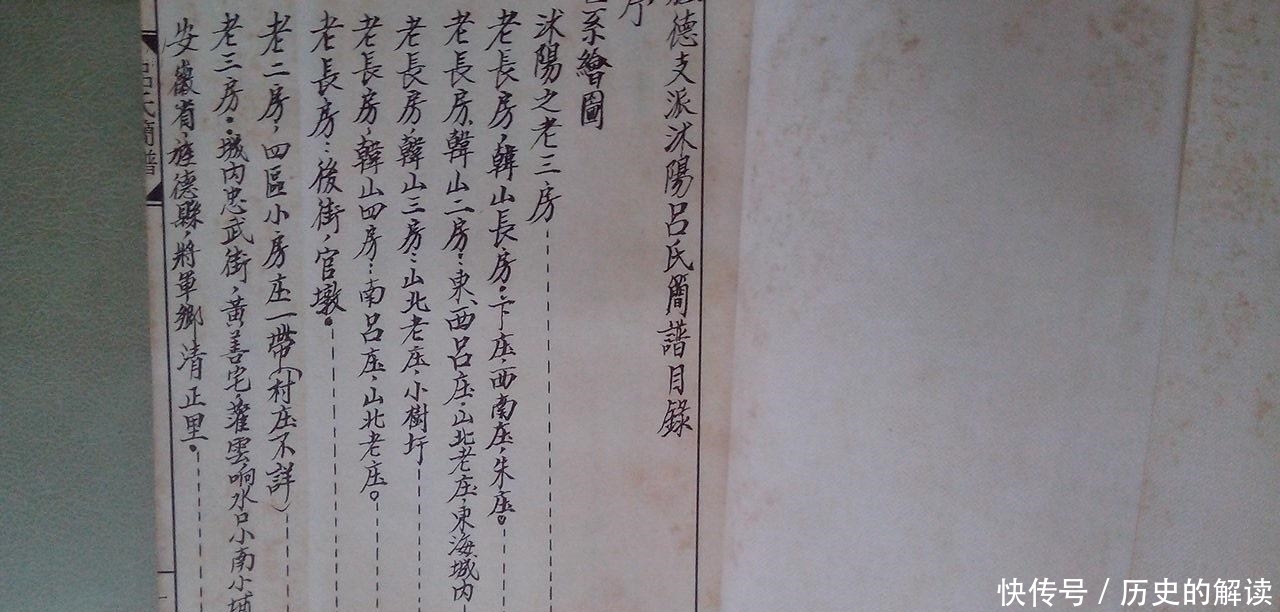 旌德支派沭陽呂氏簡譜目錄
序
世系繪圖
沭陽之老三房
老長房,韓山長房。卞庄,西南庄,朱庄。
老長房,韓山二房:東、西呂庄,山北老庄,東海城内
老長房,韓山三房:山北老庄,小樹圩
老長房,韓山四房:南呂庄,山北老庄。
老長房:後街,官墩。
老二房,四區小房庄一帶(村庄不詳)
老三房:城内忠武街,黃善宅,灌雲响水口小南小埔
安徽省,旌德縣,將軍鄉,清正里。
呂氏簡譜
快传号 / 历史的解读